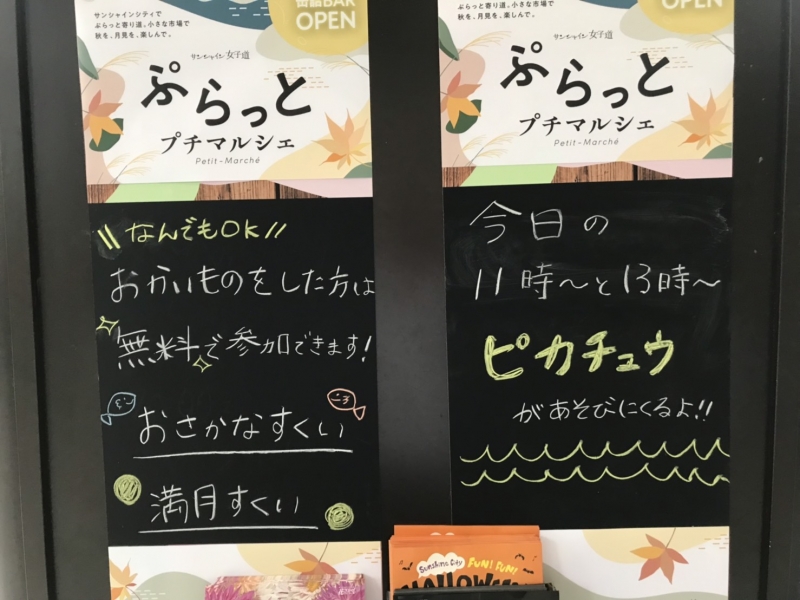 サンシャインシティで
ぷらっと寄り道。小さな市場で
秋を、月見を、楽しんで。
缶詰BAR
OPEN
サンシャイン女子道
ぷらっと
プチマルシェ
Petit-Marché
\\なんでもOK//
おかいものをした方は
無料で参加できます!
おさかなすくい
満月すくい
サンシャインシティで
ぷらっと寄り道。小さな市場で
秋を、月見を、楽しんで。
OPEN
サンシャイン女子道
ぷらっと
プチマルシェ
Petit-Marché
今日の
11時〜と13時〜
ピカチュウ
があそびにくるよ!!
Sunshine City FUN! FUN!
HALLOWEEN